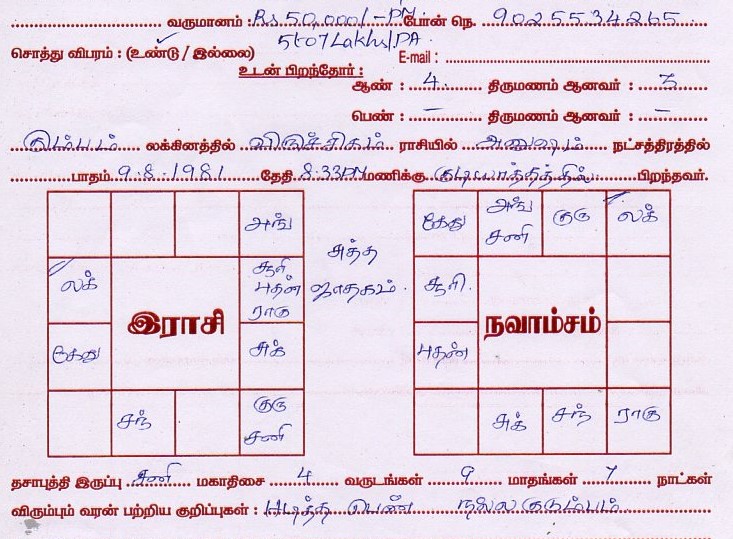 வருமானம் : Rs 50,000/- PM போன் நெ. 9025534265
5 to 7 Lakhs/PA
சொத்து விபரம் : (உண்டு / இல்லை) E-mail :
உடன் பிறந்தோர் :
ஆண் : 4 திருமணம் ஆனவர் : 3
பெண் : – திருமணம் ஆனவர் : –
கும்பம் லக்கினத்தில் விருச்சிகம் ராசியில் அனுஷம் நட்சத்திரத்தில்
பாதம் 9.8.1981 தேதி 8.33PM மணிக்கு குடியாத்தத்தில் பிறந்தவர்.
அங்
லக்
சூரி
புதன்
ராகு
இராசி
கேது
சுக்
சந்
குரு
சனி
சுத்த
ஜாதகம்
கேது
அங்
சனி
குரு
லக்
சூரி
நவாம்சம்
புதன்
சுக்
சந்
ராகு
தசாபுத்தி இருப்பு சனி மகாதிசை 4 வருடங்கள் 9 மாதங்கள் 7 நாட்கள்
விரும்பும் வரன் பற்றிய குறிப்புகள் : படித்த பெண் நல்ல குடும்பம்